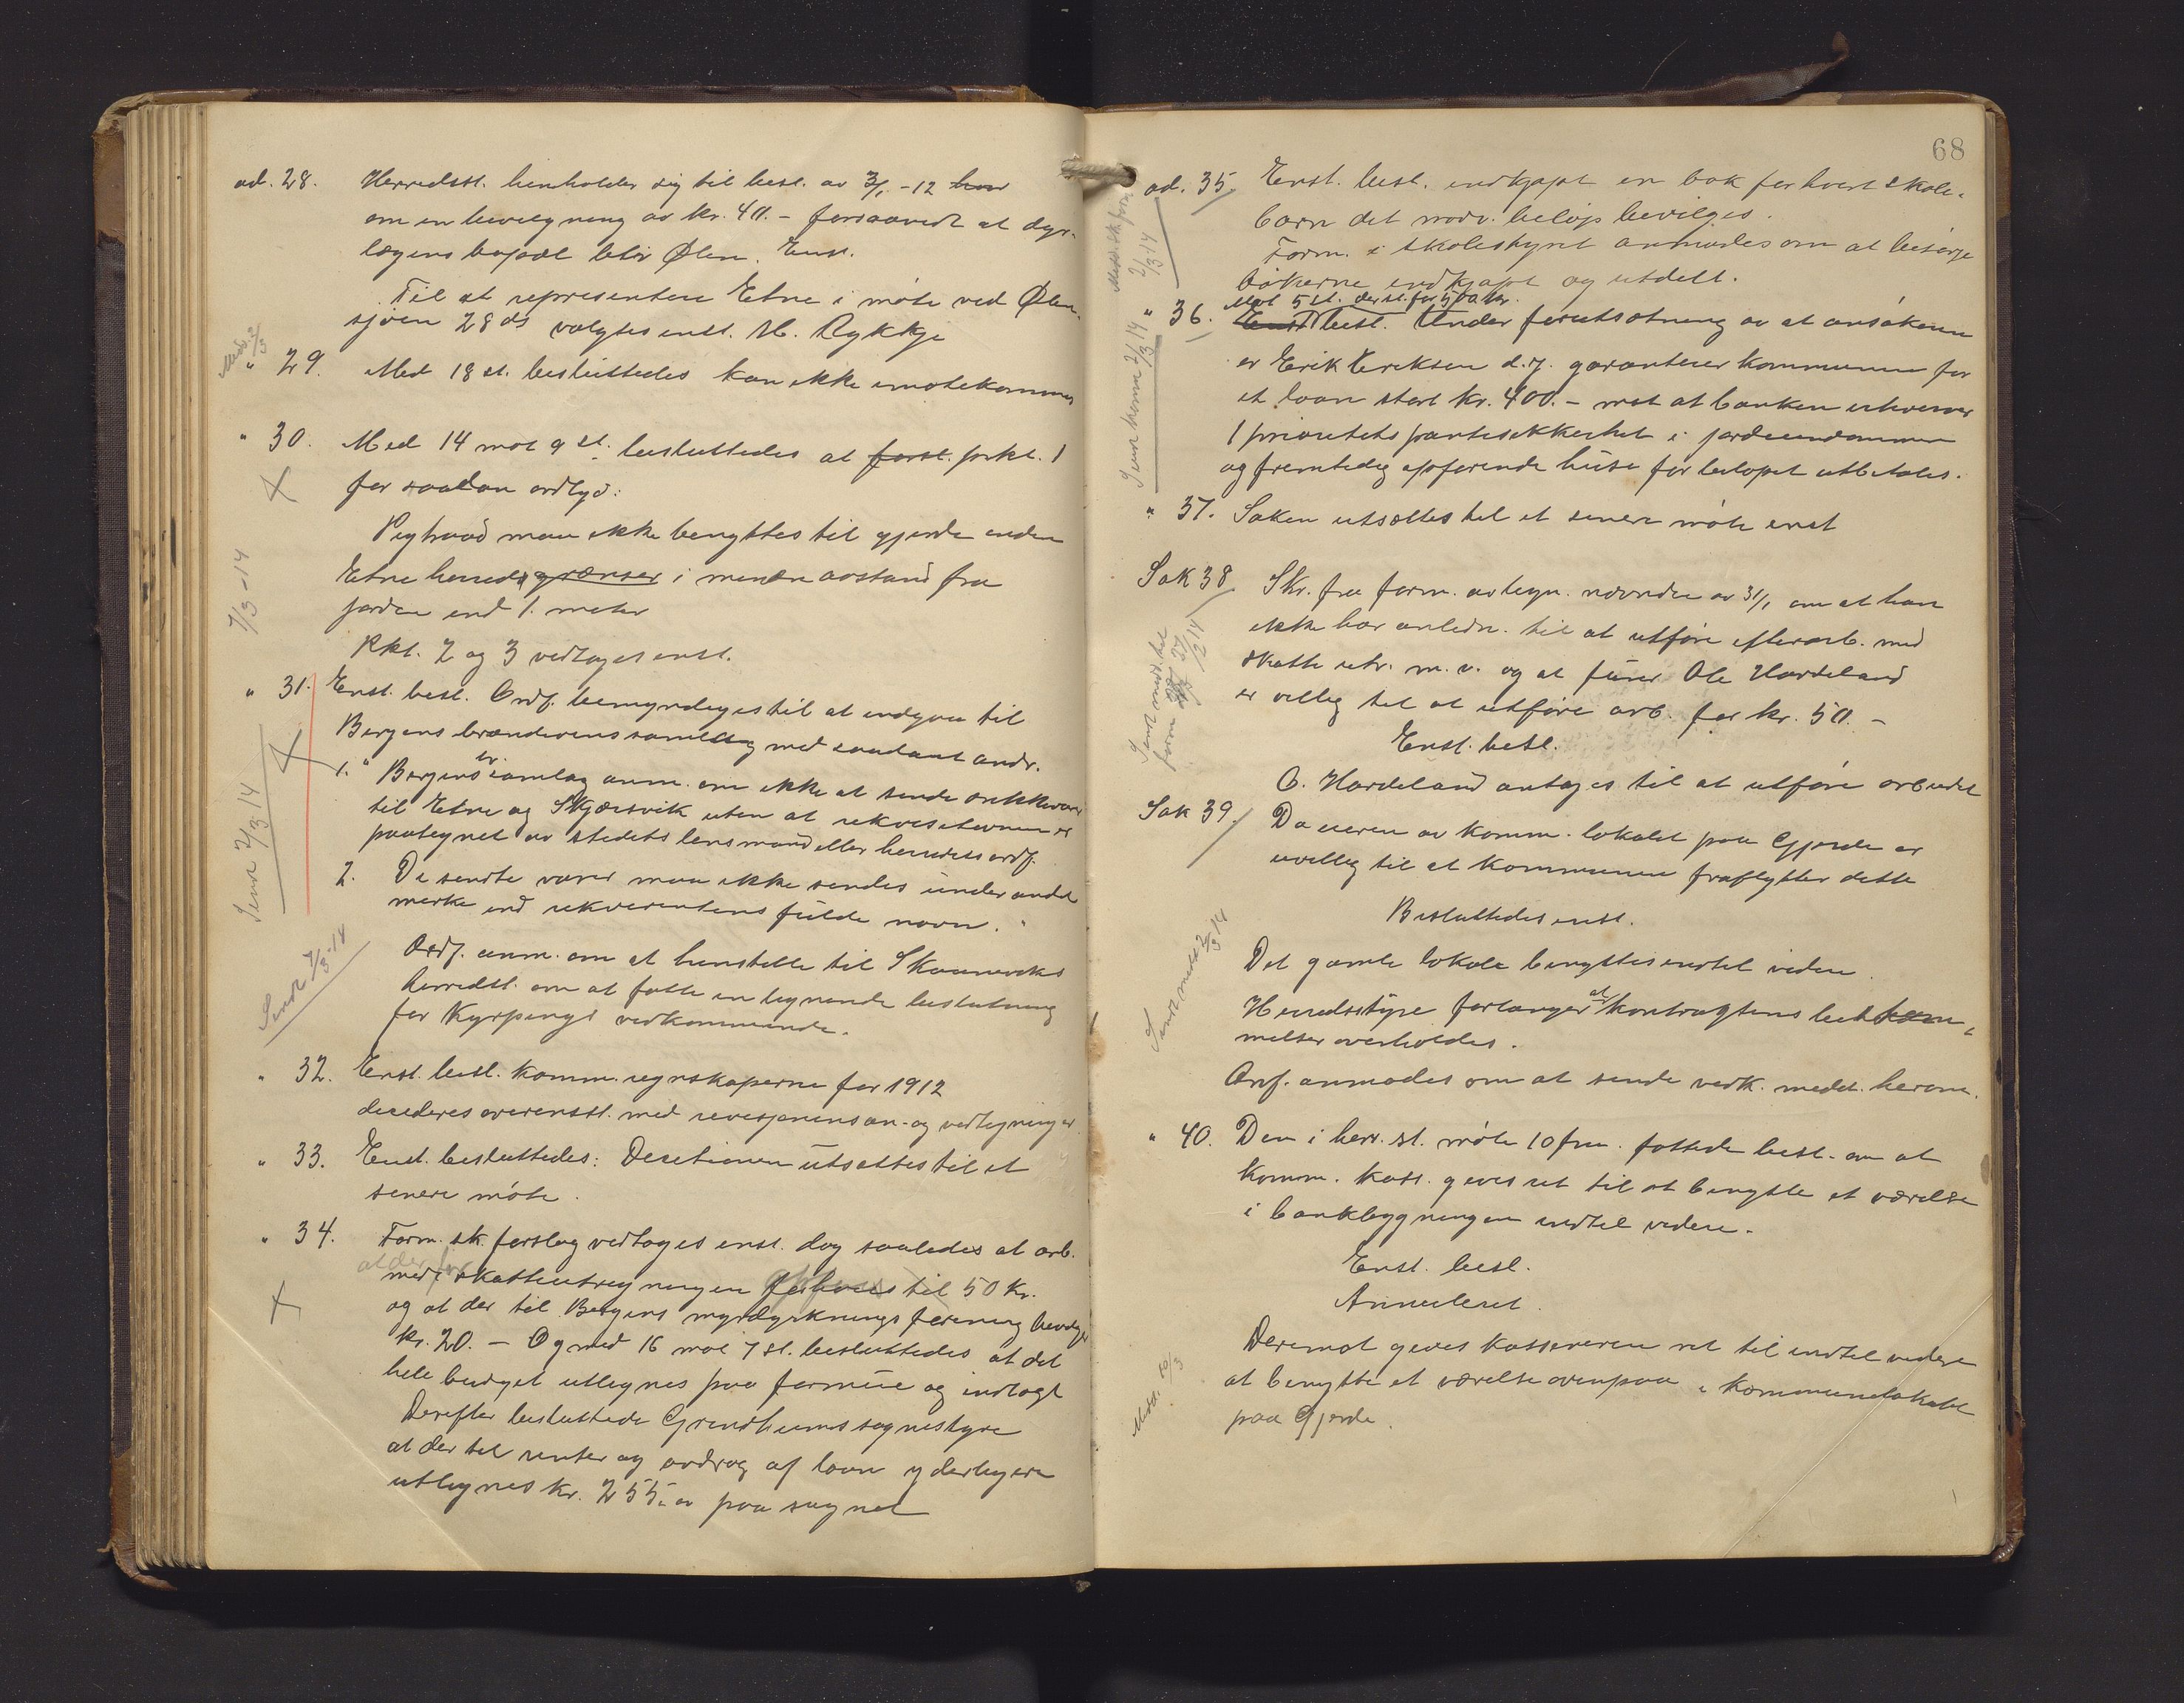 ad. 28. Herredsst. henholder sig til besl. av 3/1 -12 hvor
om en bevilgning av kr. 40.- forsaavidt at dyr-
lægens bopæl blir Ølen. Enst.
Til at representere Etne i møte ved Ølen-
sjøen 28 ds valgtes enst. M. Rykkje
Med. 2/3
" 29. Med 18 st. besluttedes kan ikke imøtekommes
" 30. Med 14 mot 9 st. besluttedes at forsl. pkt. 1
faar saadan ordlyd:
Pigtraad maa ikke benyttes til gjerde inden
Etne herreds grænser i mindre avstand fra
jorden end 1. meter
7/3 - 14
Pkt. 2 og 3 vedtages enst.
" 31. Enst. besl. Ordf. bemyndiges til at indgaa til
Bergens brændevinssamlag med saadant andr.
1. " Bergens br. samlag anm. om ikke at sende drikkevarer
til Etne og Skjærsvik uten at rekvisitionen er
paategnet av stedets lensmand eller herredets ordf.
2. De sendte varer maa ikke sendes under andet
merke end rekvirentens fulde navn. "
Sendt 2/3 14
Ordf. anm. om at henstille til Skaaneviks
herredst. om at fatte en lignende beslutning
for Kyrpings vedkommende.
Sendt 7/3 - 14
" 32. Enst. besl. Komm. regnskaperne for 1912
decideres overensst. med revisjonens an- og vedtegninger
" 33. Enst. besluttedes: Decitionen utsættes til et
senere møte.
" 34. Form. sk. forslag vedtages enst. dog saaledes at arb.
at der for
med skatteutregningen til 50 kr.
og at der til Bergens myrdyrknings forening bevilges
kr. 20. - Og med 16 mot 7 st. besluttedes at det
hele budget utlignes paa formue og indtægt
Derefter besluttede Grindheims sognestyre
at der til renter og avdrag af laan yderligere
utlignes kr. 255. paa sognet
68
ad. 35 Enst. besl. indkjøpt en bok for hvert skole-
barn det nødv. beløp bevilges.
Form. i skolestyret anmodes om at besørge
bøkerne indkjøpt og utdelt.
2/3 14
Mot 5 st. der st. for 500 kr.
" 36. Enst besl. Under forutsætning av at ansøkeren
er Erik Eriksen d.y. garanterer kommunen for
et laan stort kr. 400.- mot at banken erhverver
1 prioritets pantesikkerhet i jordeiendommen
og fremtidig opførende huse før beløpet utbetales.
2/3 14
" 37. Saken utsættes til et senere møte enst
Sak 38 Skr. fra form. av lign. nævnden av 31/1 om at han
ikke har anledn. til at utføre efterarb. med
skatte utr. m. v. og at furer Ole Hardeland
er villig til at utføre arb. for kr. 50.-
Enst. besl.
O. Hardeland antages til at utføre arbeidet
Sendt medd. til
form. 27/2 14
Sak 39. Da eieren av komm. lokalet paa Gjerde er
uvillig til at kommunen fraflytter dette
Besluttedes enst.
Det gamle lokale benyttes indtil videre.
Herredsstyre forlanger at kontraktens bestem-
melser overholdes.
Orf. anmodes om at sende vedk. medd. herom.
Sendt medd. 2/3 14
" 40. Den i herr. st. møte 10 fm. fattede besl. om at
komm. kass. gives ret til at benytte et værelse
i bankbygningen indtil videre.
Enst. besl.
Annuleret.
Derimot gives kassereren ret til indtil videre
at benytte et værelse ovenpaa i kommunelokalet
paa Gjerde.
Medd. 10/3